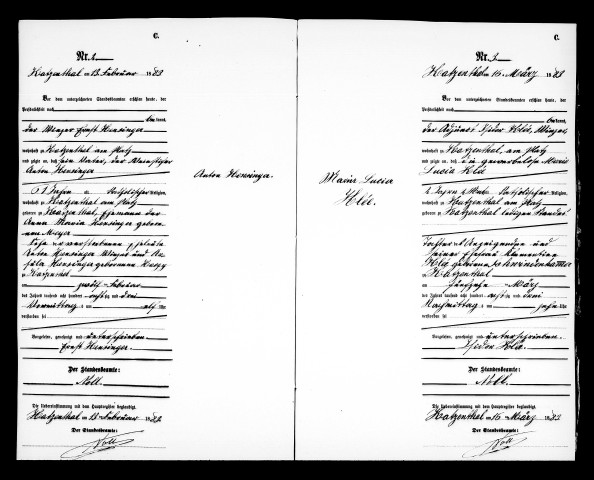 C.
Nr. 2
Katzenthal am 13 Februar 1883
Vor dem unterzeichneten Standesbeamten erschien heute, der
Persönlichkeit nach
bekannt,
der Winzer Ernst Hensinger
wohnhaft zu Katzenthal, am Platz
und zeigte an, daß sein Vater, der
Anton Hensinger
61 Jahre alt, katholischer Religion,
wohnhaft zu Katzenthal am Platz
geboren zu Katzenthal, Ehemann der
Anna Maria Hensinger gebore-
nen Meyer
Sohn der verstorbenen Eheleute
Hensinger Winzer und
Hensinger geborenen
Katzenthal
am zwölf Februar
des Jahres tausend acht hundert achtzig und drei
Vormittags um elf Uhr
verstorben sei
Vorgelesen, genehmigt und unterschrieben
Ernst Hensinger.
Der Standesbeamte:
Noll.
Die Uebereinstimmung mit dem Hauptregister beglaubigt.
Katzenthal am 13 Februar 1883
Der Standesbeamte:
Noll
Anton Hensinger.
Maria Lucia
Klée.
C.
Nr. 3.
Katzenthal am 16 März 1883
Vor dem unterzeichneten Standesbeamten erschien heute, der
Persönlichkeit nach
bekannt,
der Adjunct Isidor Klée, Winzer,
wohnhaft zu Katzenthal, am Platz
und zeigte an, daß die gewerbelose Maria
Lucia Klée
katholischer Religion,
wohnhaft zu Katzenthal am Platz
geboren zu Katzenthal ledigen Standes
Tochter des Anzeigenden und
seiner Ehefrau Klementine
Klée geborene
Katzenthal
am fünfzehn März
des Jahres tausend acht hundert achtzig und drei
Nachmittags um zehn Uhr
verstorben sei
Vorgelesen, genehmigt und unterschrieben.
Isidor Klée.
Der Standesbeamte:
Noll.
Die Uebereinstimmung mit dem Hauptregister beglaubigt.
Katzenthal am 16 März 1883
Der Standesbeamte:
Noll